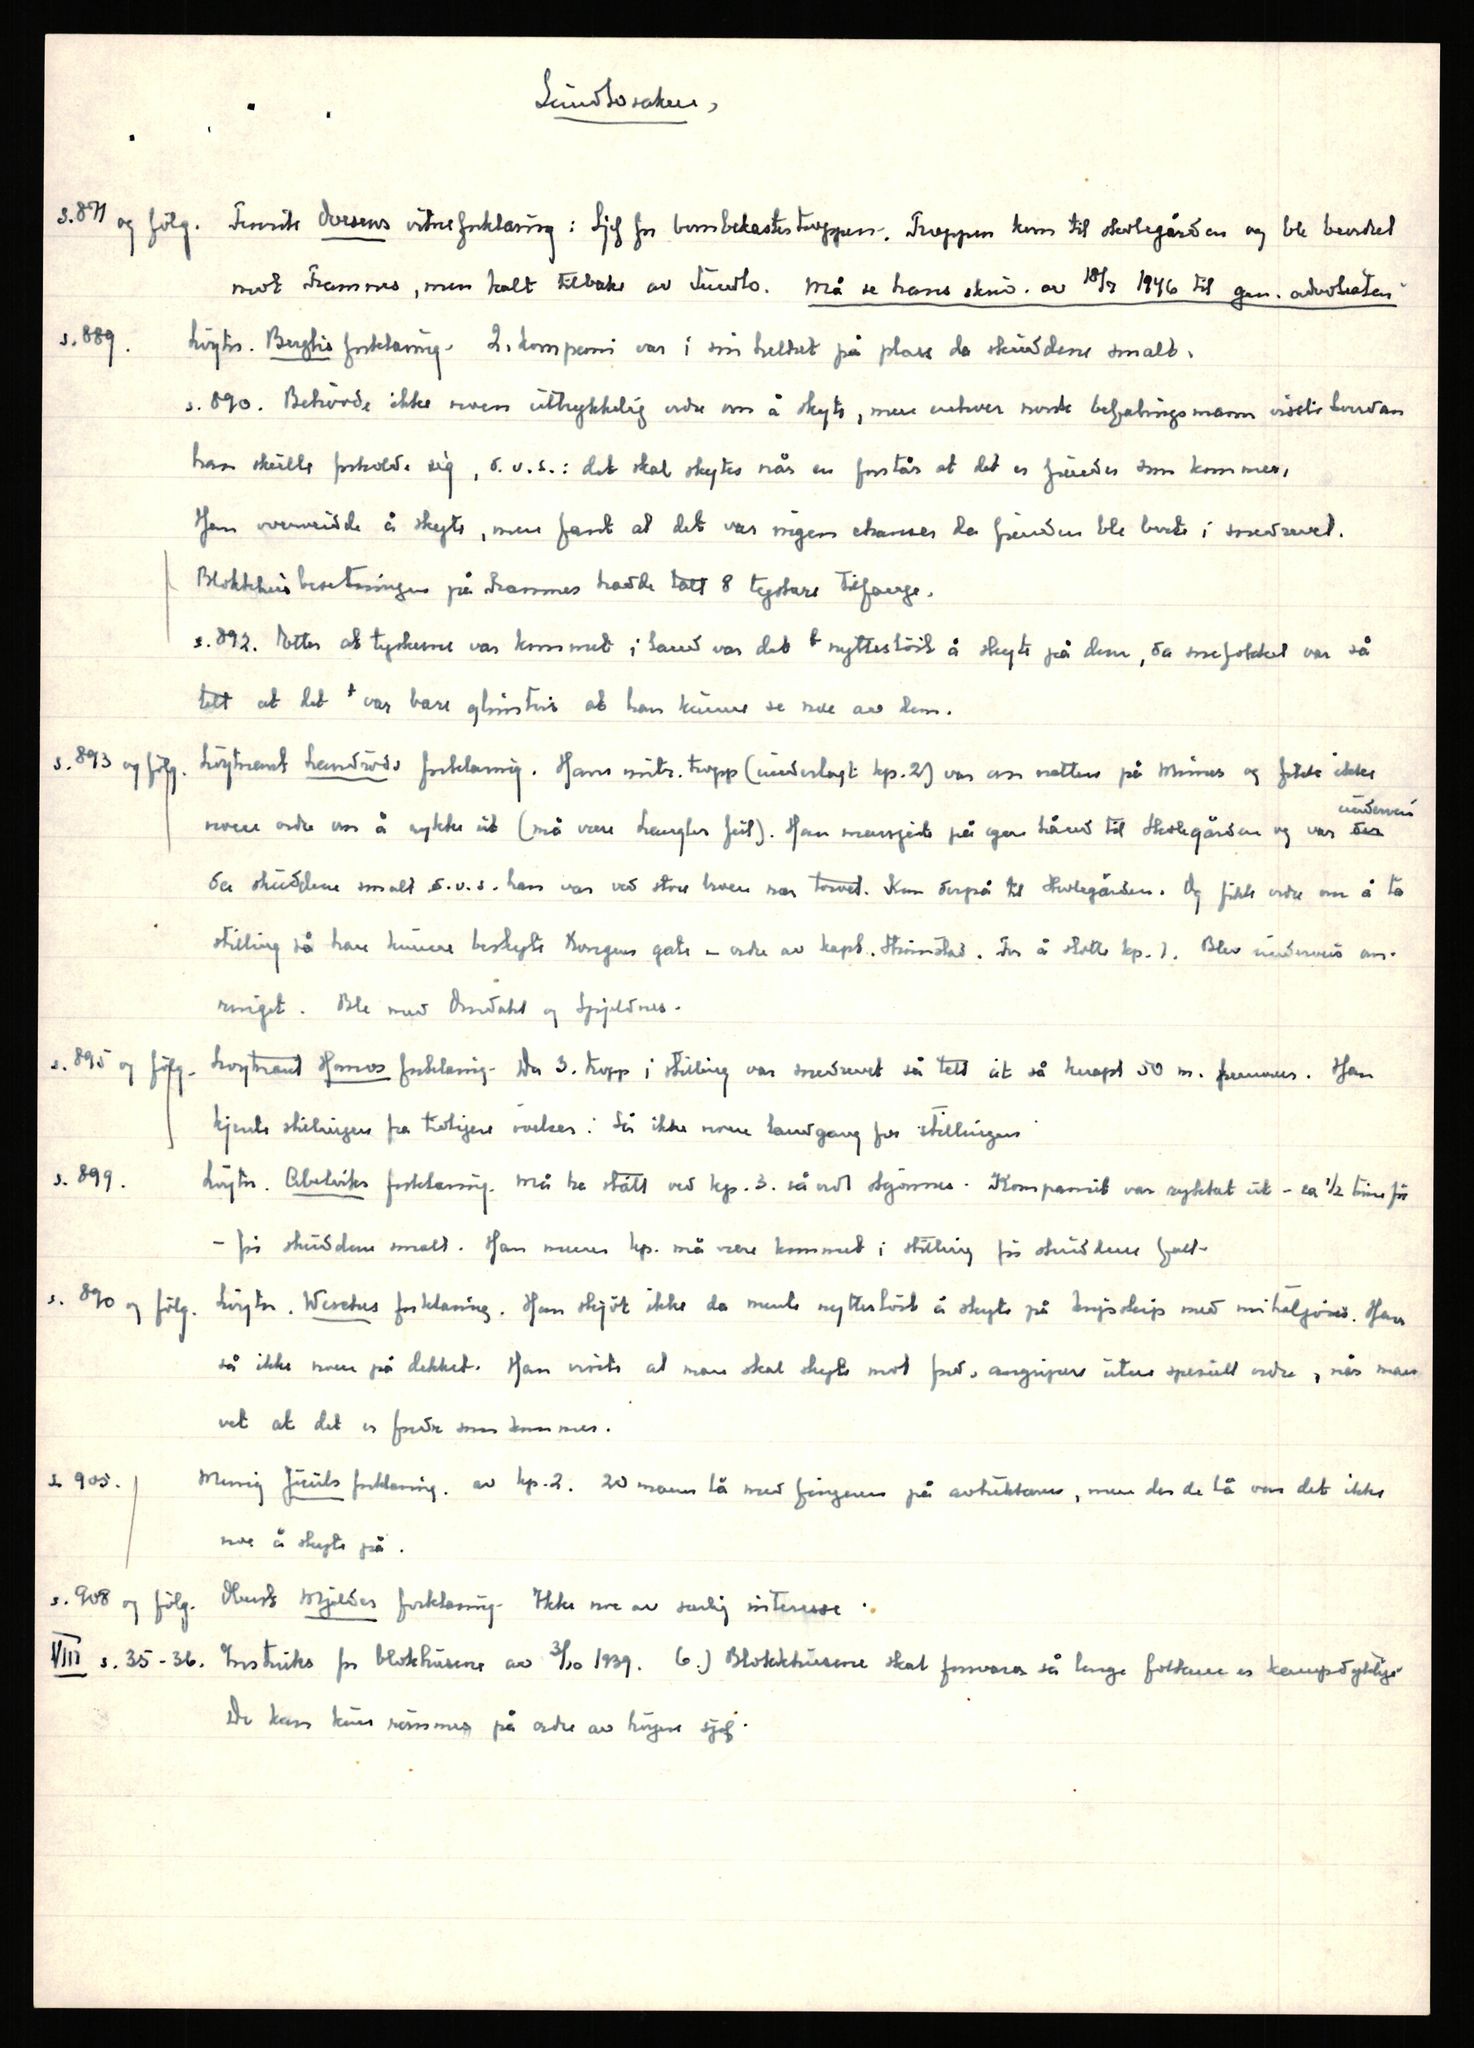 Sundlosaken,
s. 871 og følg. Fenrik Ovesens vitneforklaring: Sjef for bombekastertroppen. Troppen kom til skolegården og ble beordret
mot Framnes, men kalt tilbake av Sundlo. Må se hans skriv. av 18/7 1946 til gen. advokaten
s. 889. Løytn. Berglis forklaring. 2. kompani var i sin helhet på plass da skuddene smalt.
s. 890. Behøvde ikke noen uttrykkelig ordre om å skyte, men enhver norsk befalingsmann visste hvordan
han skulle forholde sig, d.v.s.: det skal skytes når en forstår at det er fiender som kommer.
Han overveidde å skyte, men fant at det var ingen chanser da fienden ble borte i snedrevet.
Blokkhusbesetningen på Framnes hadde tatt 8 tyskere tilfange.
s. 892. Etter at tyskerne var kommet i land var det nytteløst å skyte på dem, da snefokket var så
tett at det var bare glimtvis at han kunne se noe av dem.
s. 893 og følg. Løytnant Landrøds forklaring. Hans mitr. tropp (underlagt kp. 2) var om natten på Minus og fikk ikke
noen ordre om å rykke ut (må være Langlos feil). Han marsjerte på egen hånd til skolegården og var der underveis
da skuddene smalt d.v.s. han var ved store broen nær torvet. Kom derpå til skolegården. Og fikk ordre om å ta
stilling så han kunne beskyte Kongens gate - ordre av kapt. Strømstad. For å støtte kp. 1. Blev underveis om-
ringet. Ble med Omdahl og Spjeldnes.
s. 895 og følg. Løytnant Hamos forklaring. Da 3. tropp i stilling var snedrevet så tett ut så knapt 50 m. fremover. Han
kjente stillingen fra tidligere øvelser. Så ikke noen landgang fra stillingen
s. 899. Løytn. Abelviks forklaring. Må ha stått ved kp. 3. så vidt skjønnes. Kompaniet var rykket ut - ca 1/2 time før
- før skuddene smalt. Han mener kp. må være kommet i stilling før skuddene falt.
s. 890 og følg. Løytn. Wesches forklaring. Han skjøt ikke da mente nytteløst å skyte på krigsskip med mitraljøse. Han
så ikke noen på dekket. Han visste at man skal skyte mot fred. angripere uten spesiell ordre, når man
vet at det er fiender som kommer.
s. 905. Menig Juuls forklaring. av kp. 2. 20 mann lå med fingeren på avtrekkeren, men der de lå var det ikke
noe å skyte på.
s. 908 og følg. Oberst Mjeldes forklaring. Ikke noe av særlig interesse.
VIII s. 35-36. Instruks for blokkhusene av 3/10 1939. 6.) Blokkhusene skal forsvares så lenge folkene er kampdyktige
De kan kun rømmes på ordre av høiere sjef.